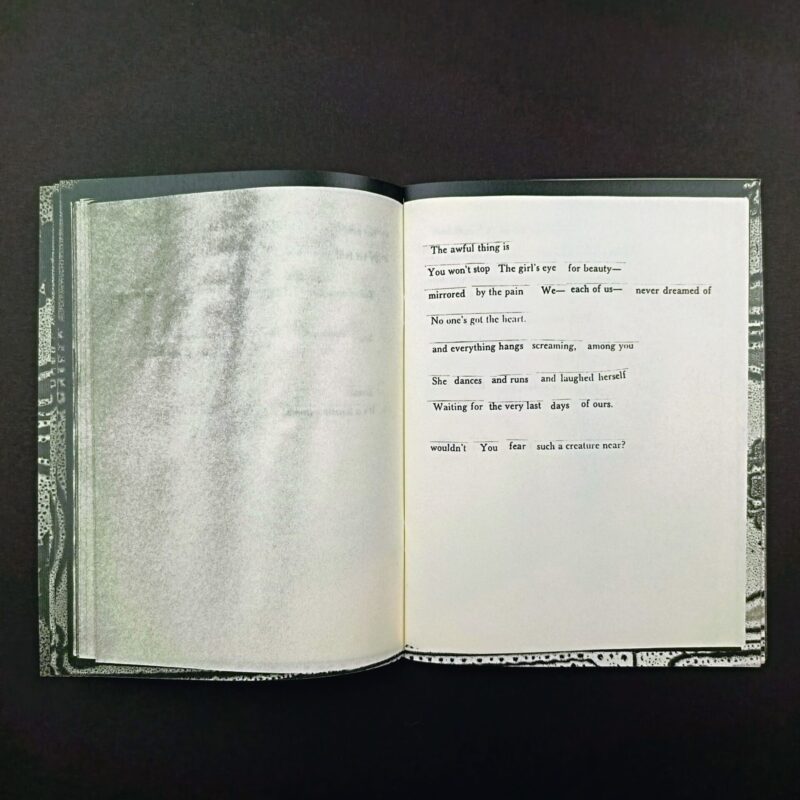 The awful thing is
You won't stop The girl's eye for beauty—
mirrored by the pain We— each of us— never dreamed of
No one's got the heart.
and everything hangs screaming, among you
She dances and runs and laughed herself
Waiting for the very last days of ours.
wouldn't You fear such a creature near?